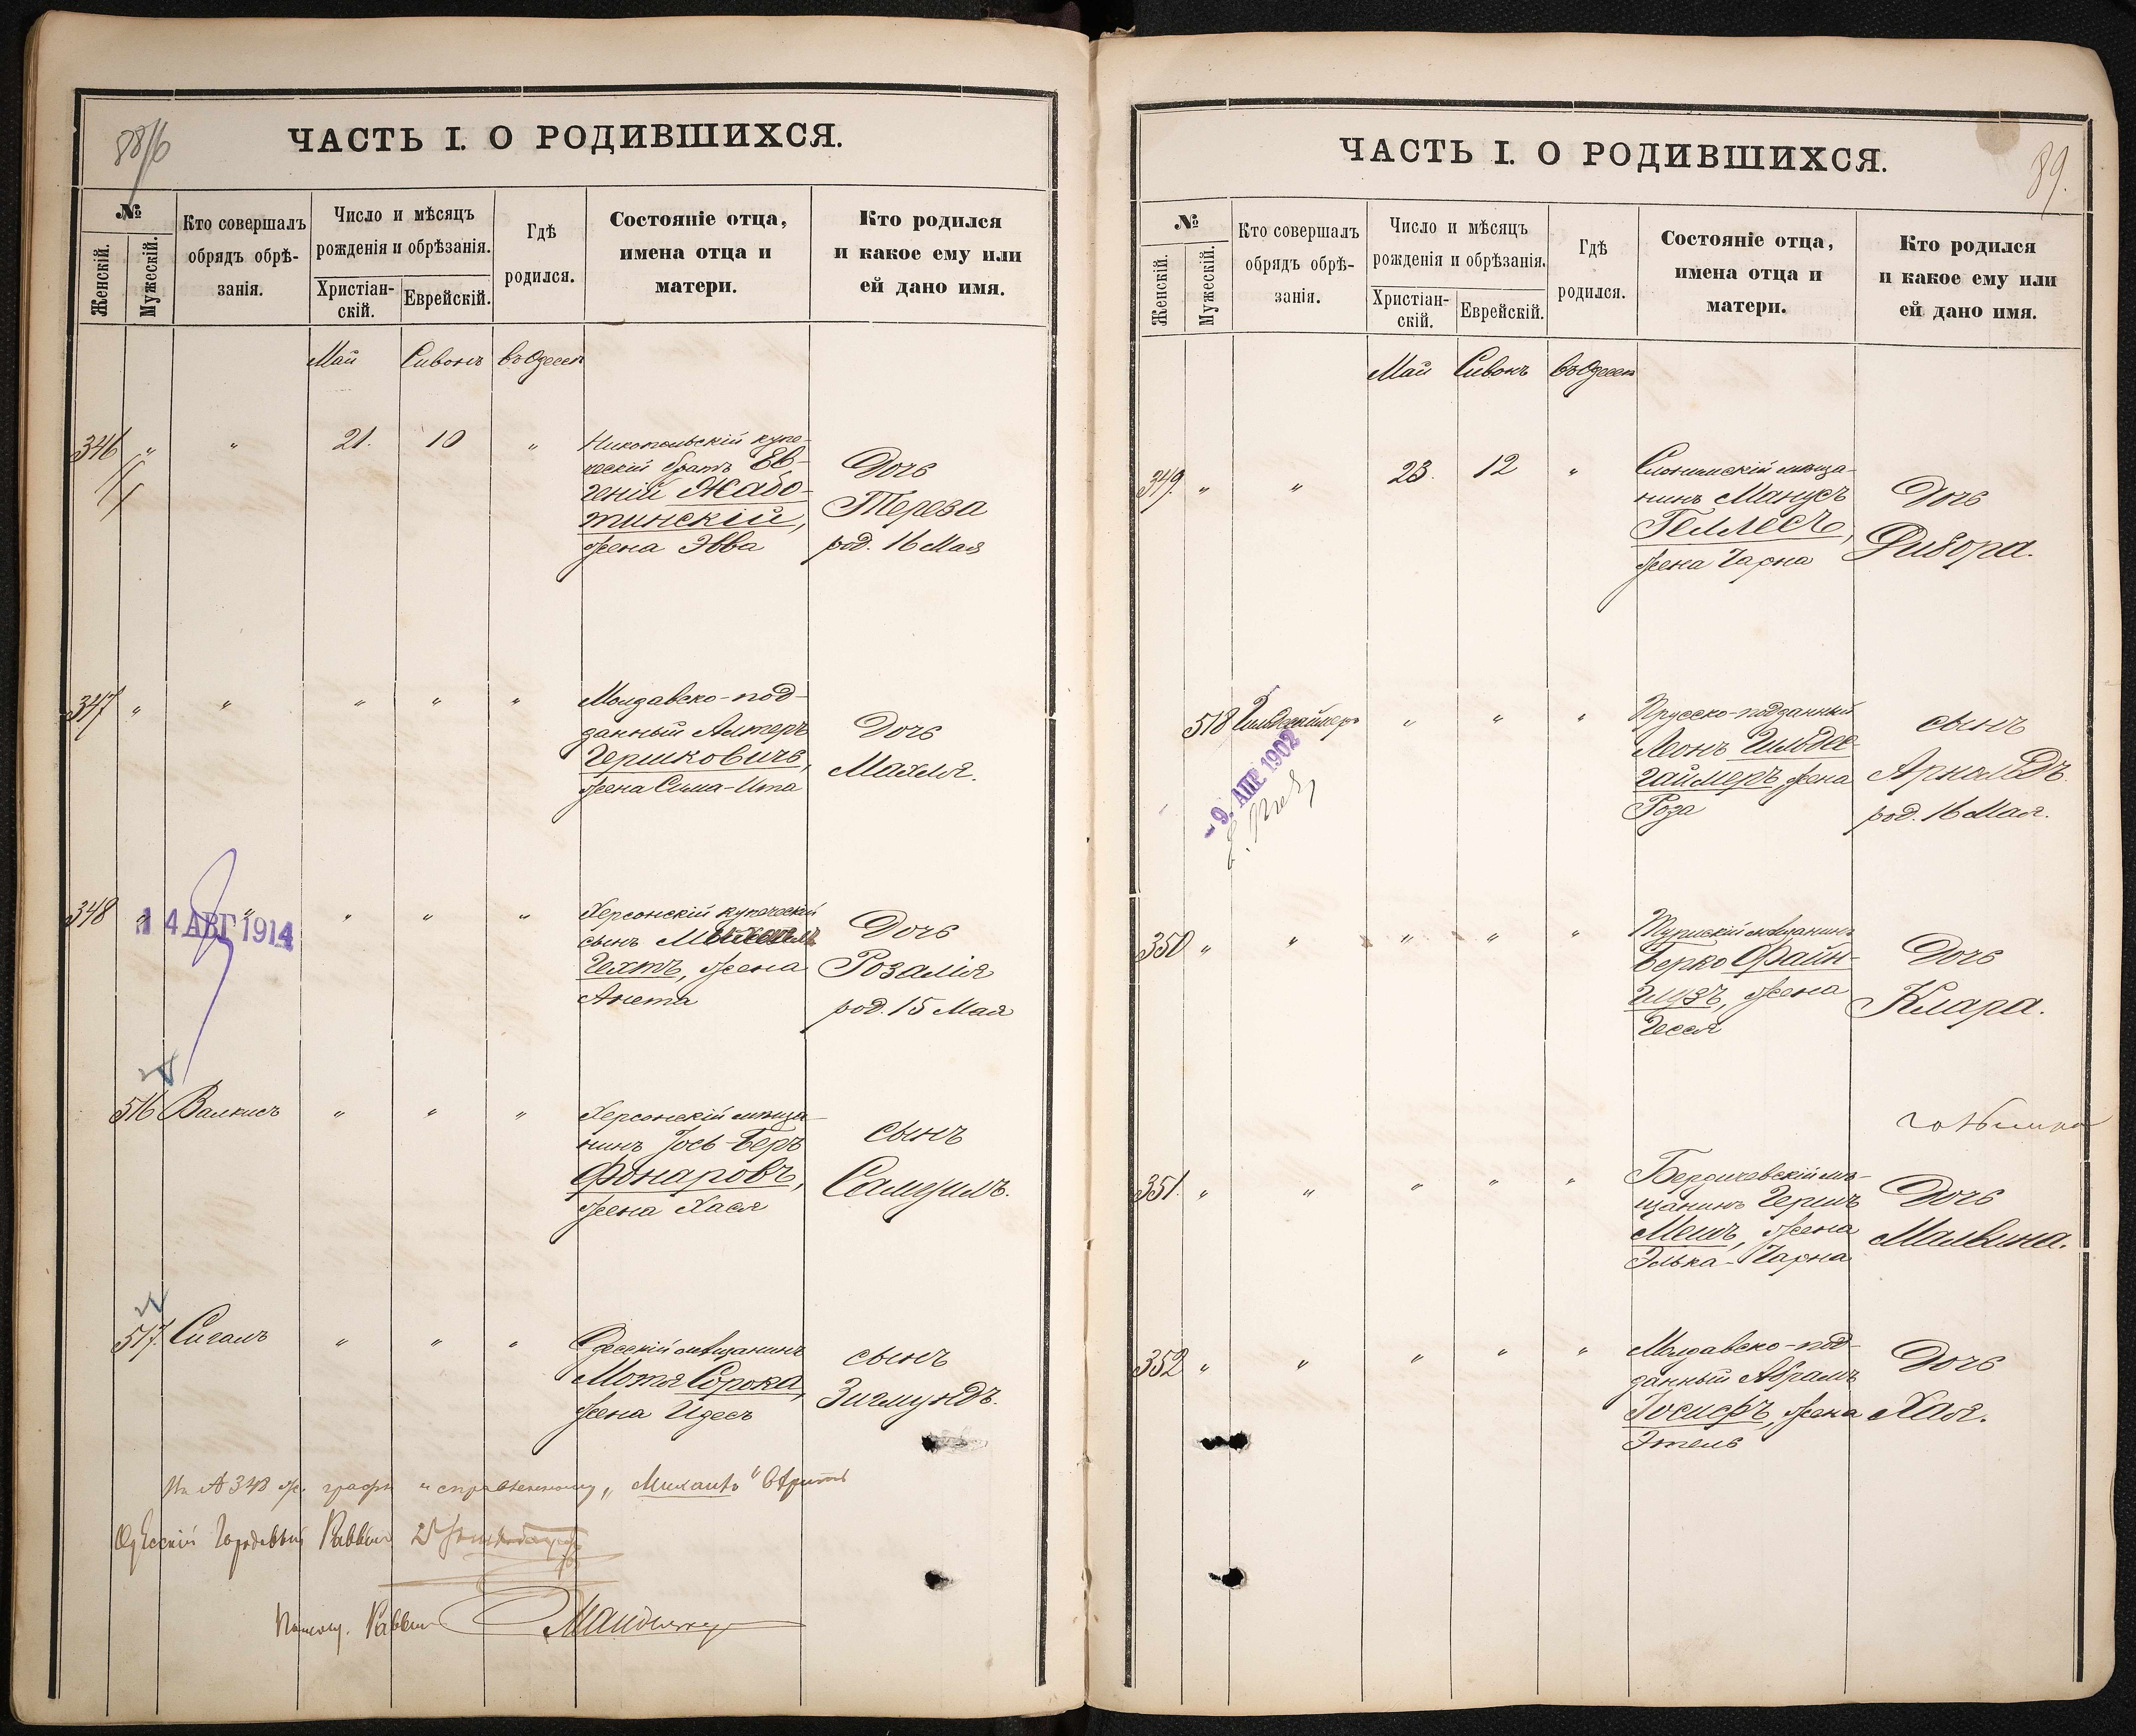 ЧАСТЬ I. О РОДИВШИХСЯ.
№
Женскій.
Мужескій.
Кто совершалъ
обрядъ обрѣ-
занія.
Число и мѣсяцъ
рожденія и обрѣзанія.
Христіан-
скій.
Еврейскій.
Гдѣ
родился.
Состояніе отца,
имена отца и
матери.
Кто родился
и какое ему или
ей дано имя.
Май Сивонъ въ Одессѣ
346 " " 21. 10 "
Никопольскій купе-
ческій братъ Ев-
геній Жабо-
тинскій,
жена Эвва
Дочь
Тереза
род. 16 Мая
347 " " " " "
Молдавско-под-
данный Алтеръ
Гершковичъ,
жена Сима-Ита
Дочь
Махля.
348 " " " " "
14 АВГ 1914
Херсонскій купеческій
сынъ
Гехтъ, жена
Анета
Дочь
Розалія
род. 15 Мая
516 Валкисъ " " "
Херсонскій мѣща-
нинъ Іось-Беръ
Фонаровъ,
жена Хася
сынъ
Самуилъ.
517. Сигалъ " " "
Одесскій мѣщанинъ
Мотя Сорока,
жена Идесъ
сынъ
Зигмундъ.
На № 348 ж. графы исправленному „Михаилъ" вѣрить
Одесскій Городовый Раввинъ
Помощ. Раввина
ЧАСТЬ I. О РОДИВШИХСЯ.
89.
№
Женскій.
Мужескій.
Кто совершалъ
обрядъ обрѣ-
занія.
Число и мѣсяцъ
рожденія и обрѣзанія.
Христіан-
скій.
Еврейскій.
Гдѣ
родился.
Состояніе отца,
имена отца и
матери.
Кто родился
и какое ему или
ей дано имя.
Май Сивонъ въ Одессѣ
349. " " 23. 12 "
Слонимскій мѣща-
нинъ Манусъ
Геллесъ,
жена Чарна
Дочь
Дибора.
518 " " "
- 9. АПР 1902
Прусско-подданный
Леонъ Гильдес-
гаймеръ, жена
Роза
сынъ
Арнольдъ.
род. 16 Мая.
350 " " " " "
мѣщанинъ
Берко Файн-
гузъ, жена
Гесся
Дочь
Клара.
351. " " " " "
Бердичевскій мѣ-
щанинъ Гершъ
Мешъ, жена
Элька-Чарна
Дочь
Мальвина.
352 " " " " "
Молдавско-под-
данный Абрамъ
Іосифъ, жена
Этель
Дочь
Хая.